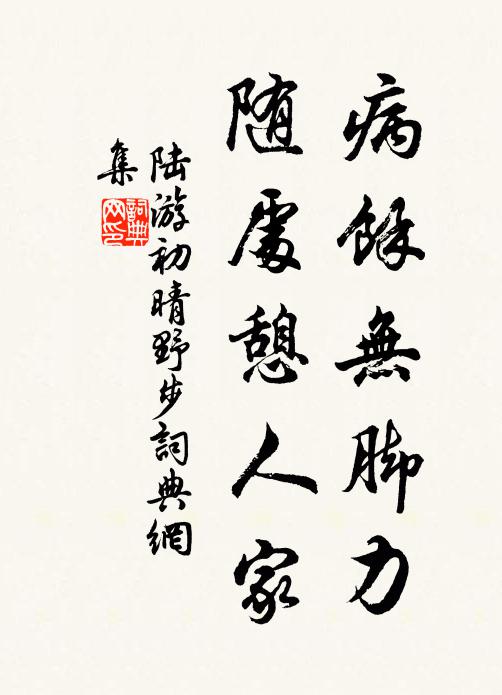 病餘無脚力
随處憩人家
陆游初晴野步詞典網
集
詞典
网印